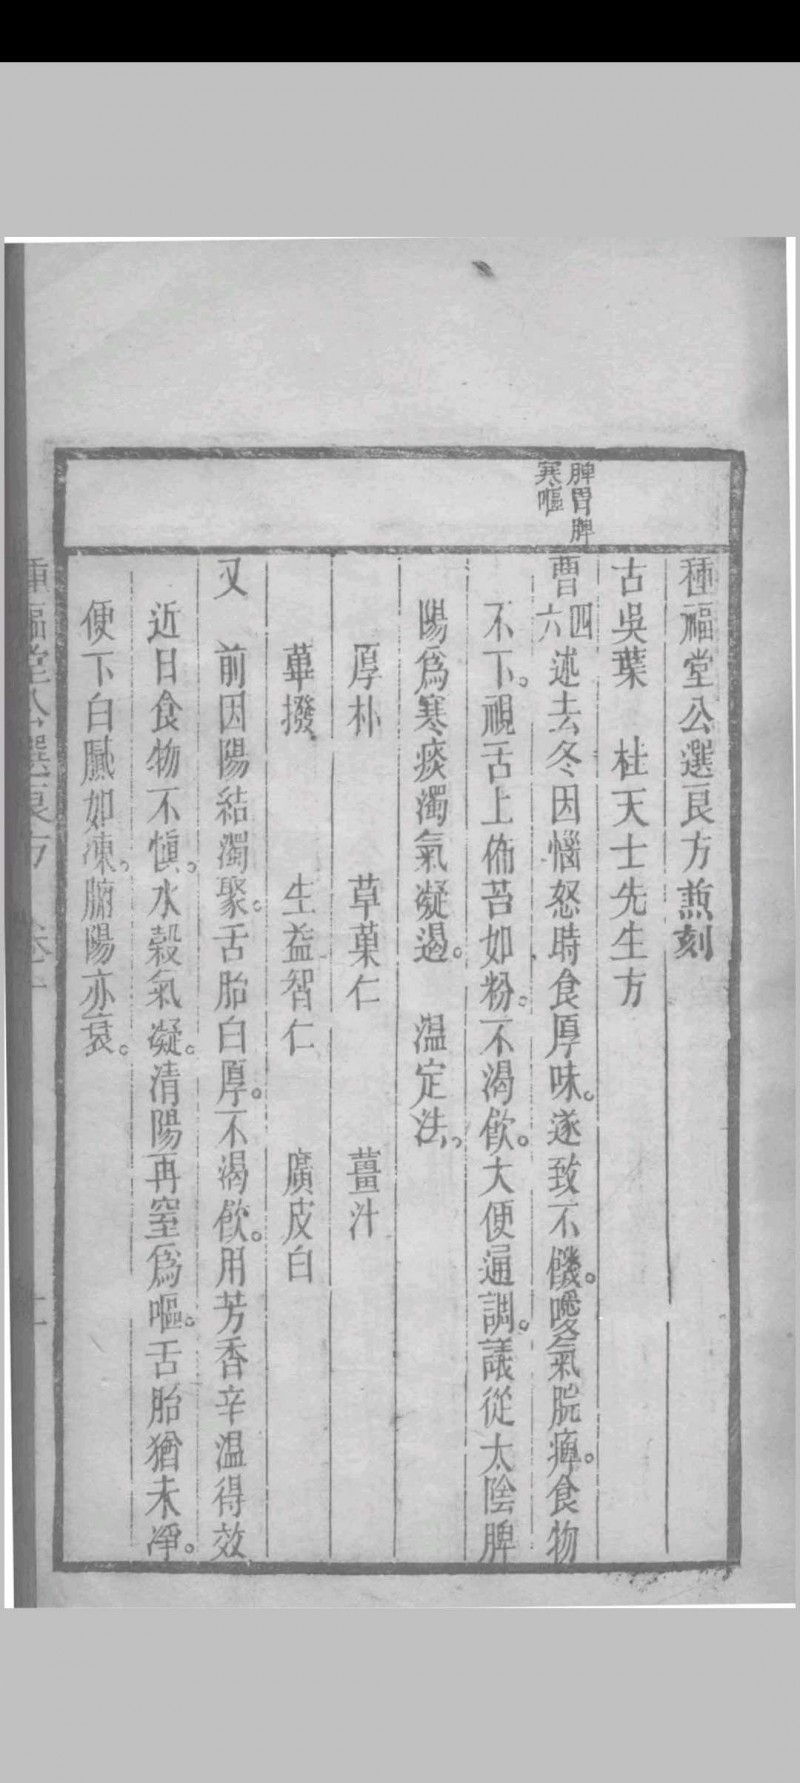 種福堂公選良方兼刻
古吳葉 桂天士先生方
脾胃脾
寒嘔
曹四六述去冬因惱怒時食厚味。遂致不饑。噯氣脘痺。食物
不下。視舌上佈苔如粉。不渴飲。大便通調。議從太陰脾
陽爲寒痰濁氣凝遏。 溫定法。
厚朴 草菓仁 薑汁
蓽撥 生益智仁 廣皮白
又 前因陽結濁聚。舌胎白厚。不渴飲。用芳香辛溫得效
近日食物不慎。水穀氣凝。清陽再窒爲嘔。舌胎猶未淨。
便下白膩如凍。腑陽亦衰。
種福堂公選良方 卷一 一